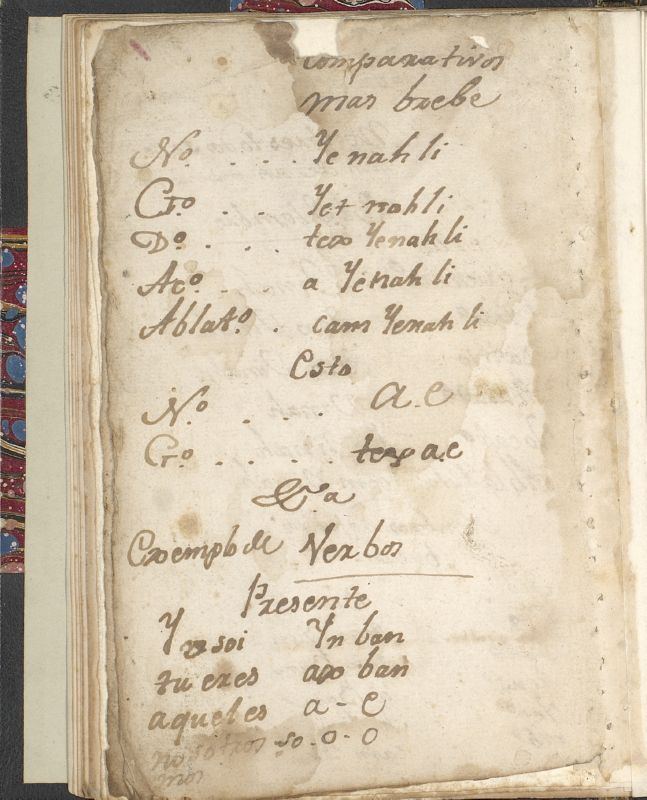 comparativos
mas brebe
No. . . . Yenahli
Go. . . Yet nahli
Do. . . . tex Yenahli
Aco. . . . a Yenahli
Ablato. . cam Yenahli
Esto
N.o . . . . a.e
Go. . . . . . tex a.e
&a
Exemplo de Verbos
Presente
Yo soi Yn ban
tu eres ax ban
aquel es a - e
nosotros so - o - o
mos